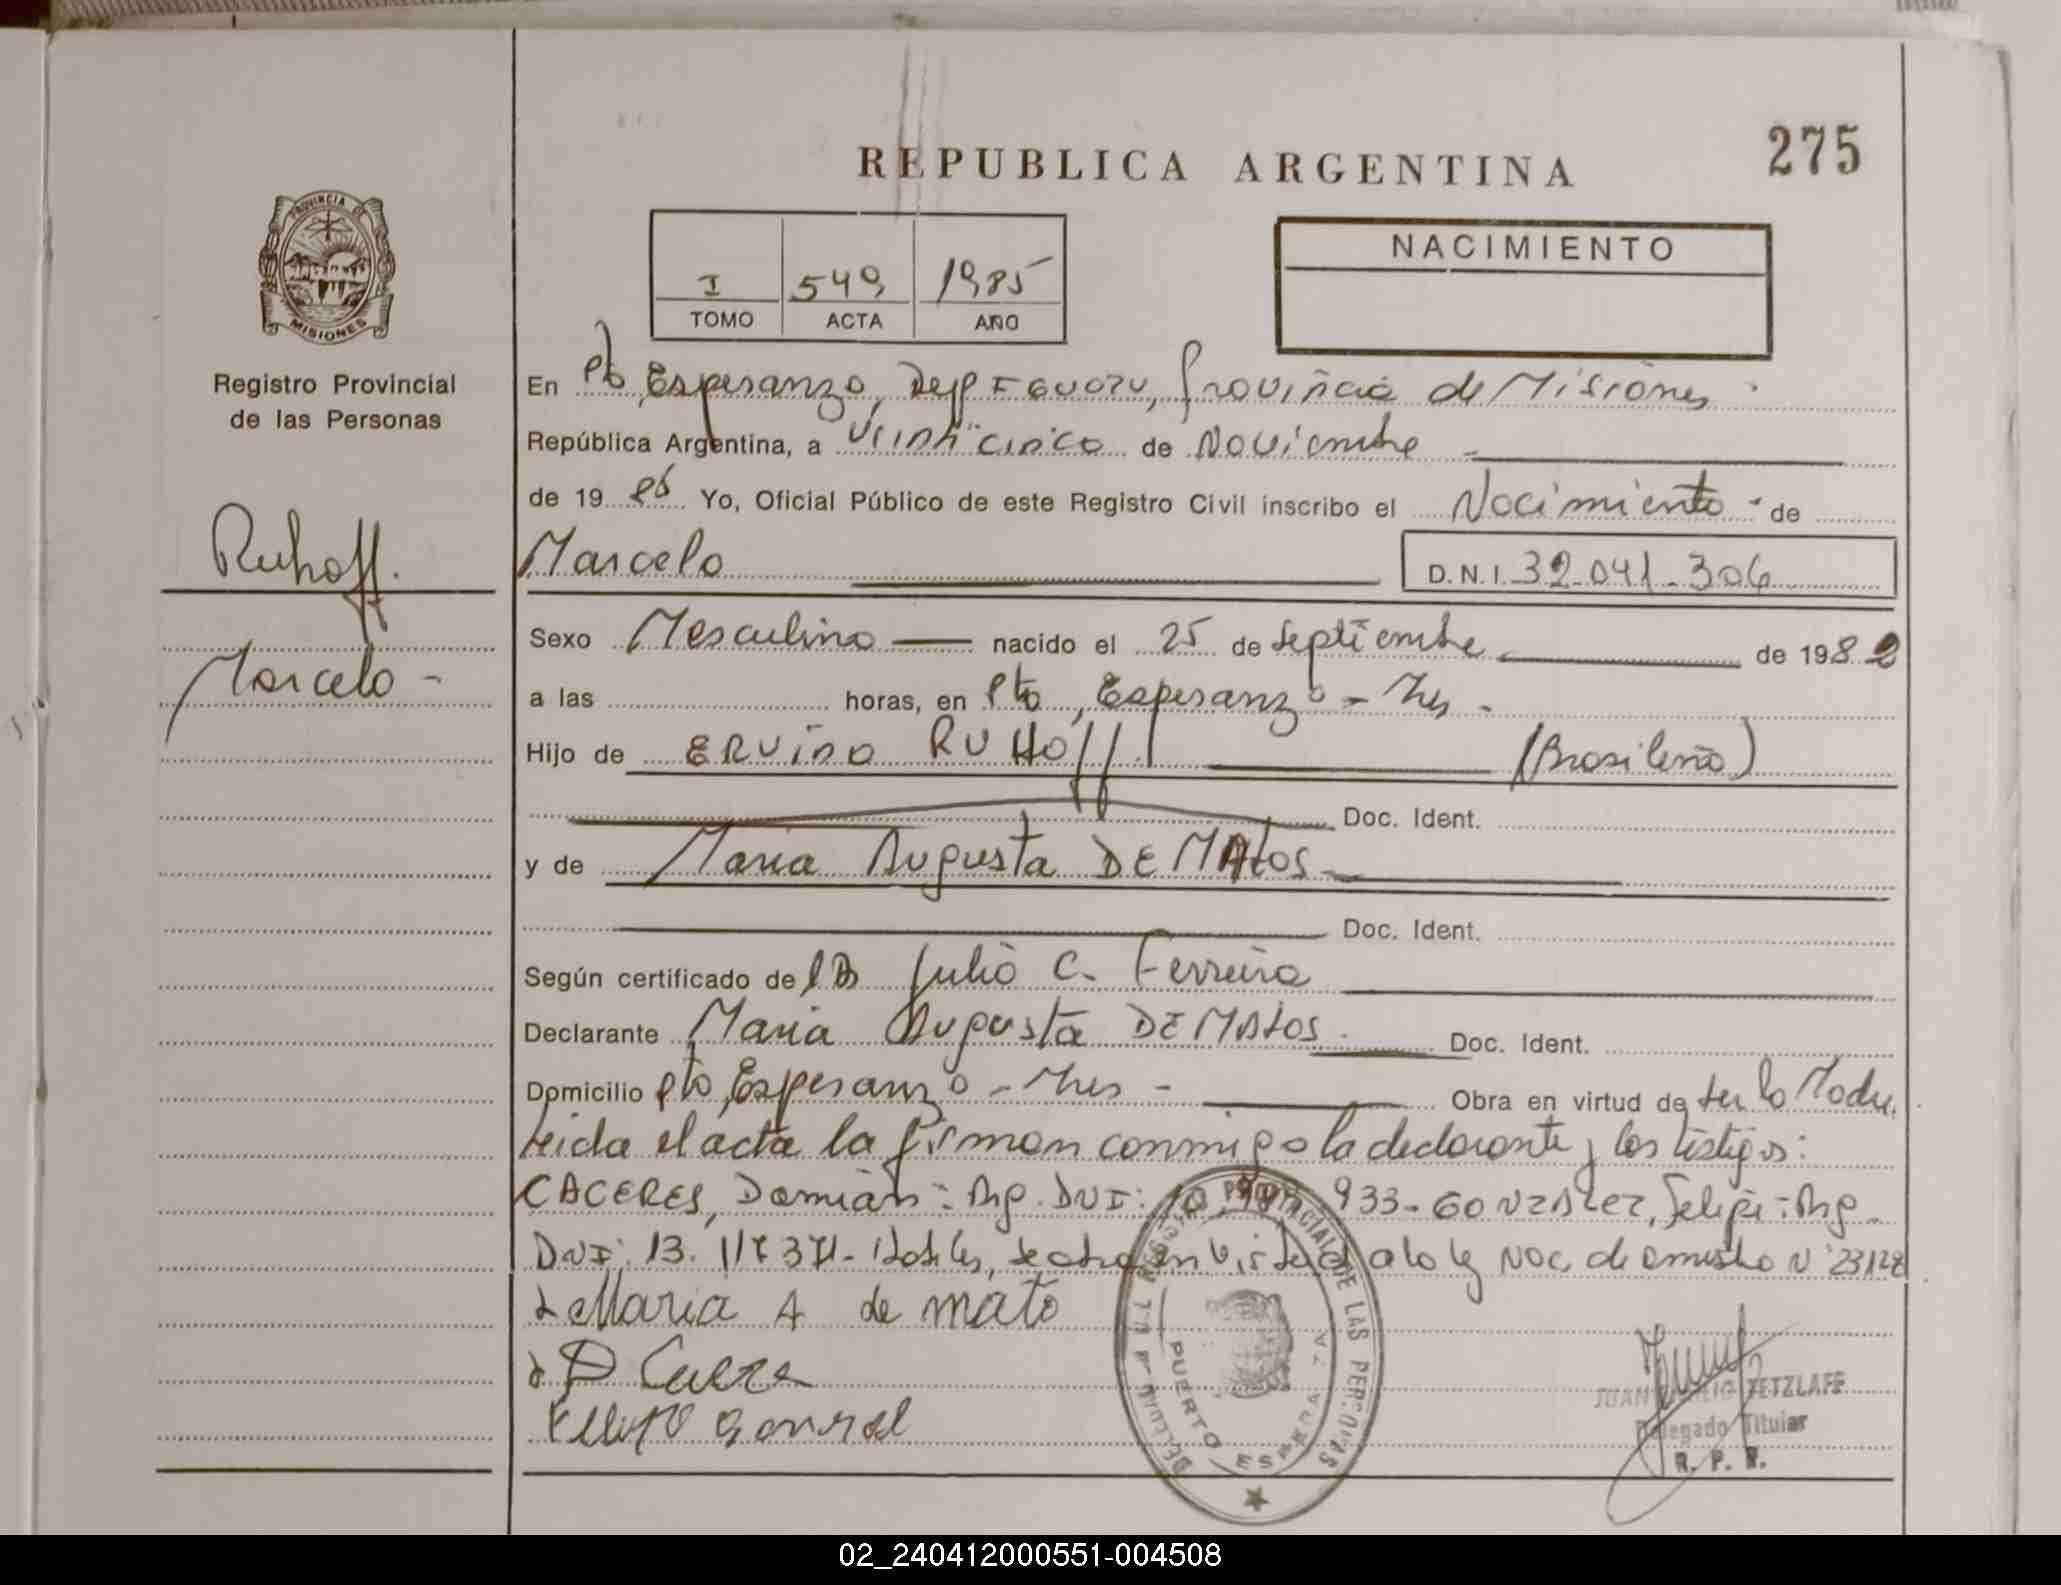 REPUBLICA ARGENTINA
275
PROVINCIA DE
MISIONES
Registro Provincial
de las Personas
I 549 1985
TOMO ACTA AÑO
NACIMIENTO
En Pto Esperanza, Dep IGUAZU, Provincia de Misiones
República Argentina, a Veinticinco de Noviembre
de 19 85 Yo, Oficial Público de este Registro Civil inscribo el Nacimiento - de
Marcelo
D.N.I. 32-041-306
Ruhoff.
Marcelo -
Sexo Masculino nacido el 25 de Septiembre de 1982
a las horas, en Pto, Esperanza - Mnes -
Hijo de ERVINO RUHOff (Brasileño)
Doc. Ident.
y de Maria Augusta DE MAtos
Doc. Ident.
Según certificado de Julio C. Ferreira
Declarante Maria Augusta DE MAtos. Doc. Ident.
Domicilio Pto, Esperanza - Mnes - Obra en virtud de ser la Madre.
leida el acta la firman conmigo la declarante y los testigos:
CACERES, Damián: Arg. DNI: 933 - GONZALEZ, Felipe: Arg -
DNI: 13. 117 371 - se en virtud a la ley Nac. de amnistia N° 23128
Maria A de mato
D Caceres
JUAN TETZLAFF
Delegado Titular
R. P. P.
REGISTRO PROVINCIAL DE LAS PERSONAS
PUERTO ESPERANZA
02_240412000551-004508